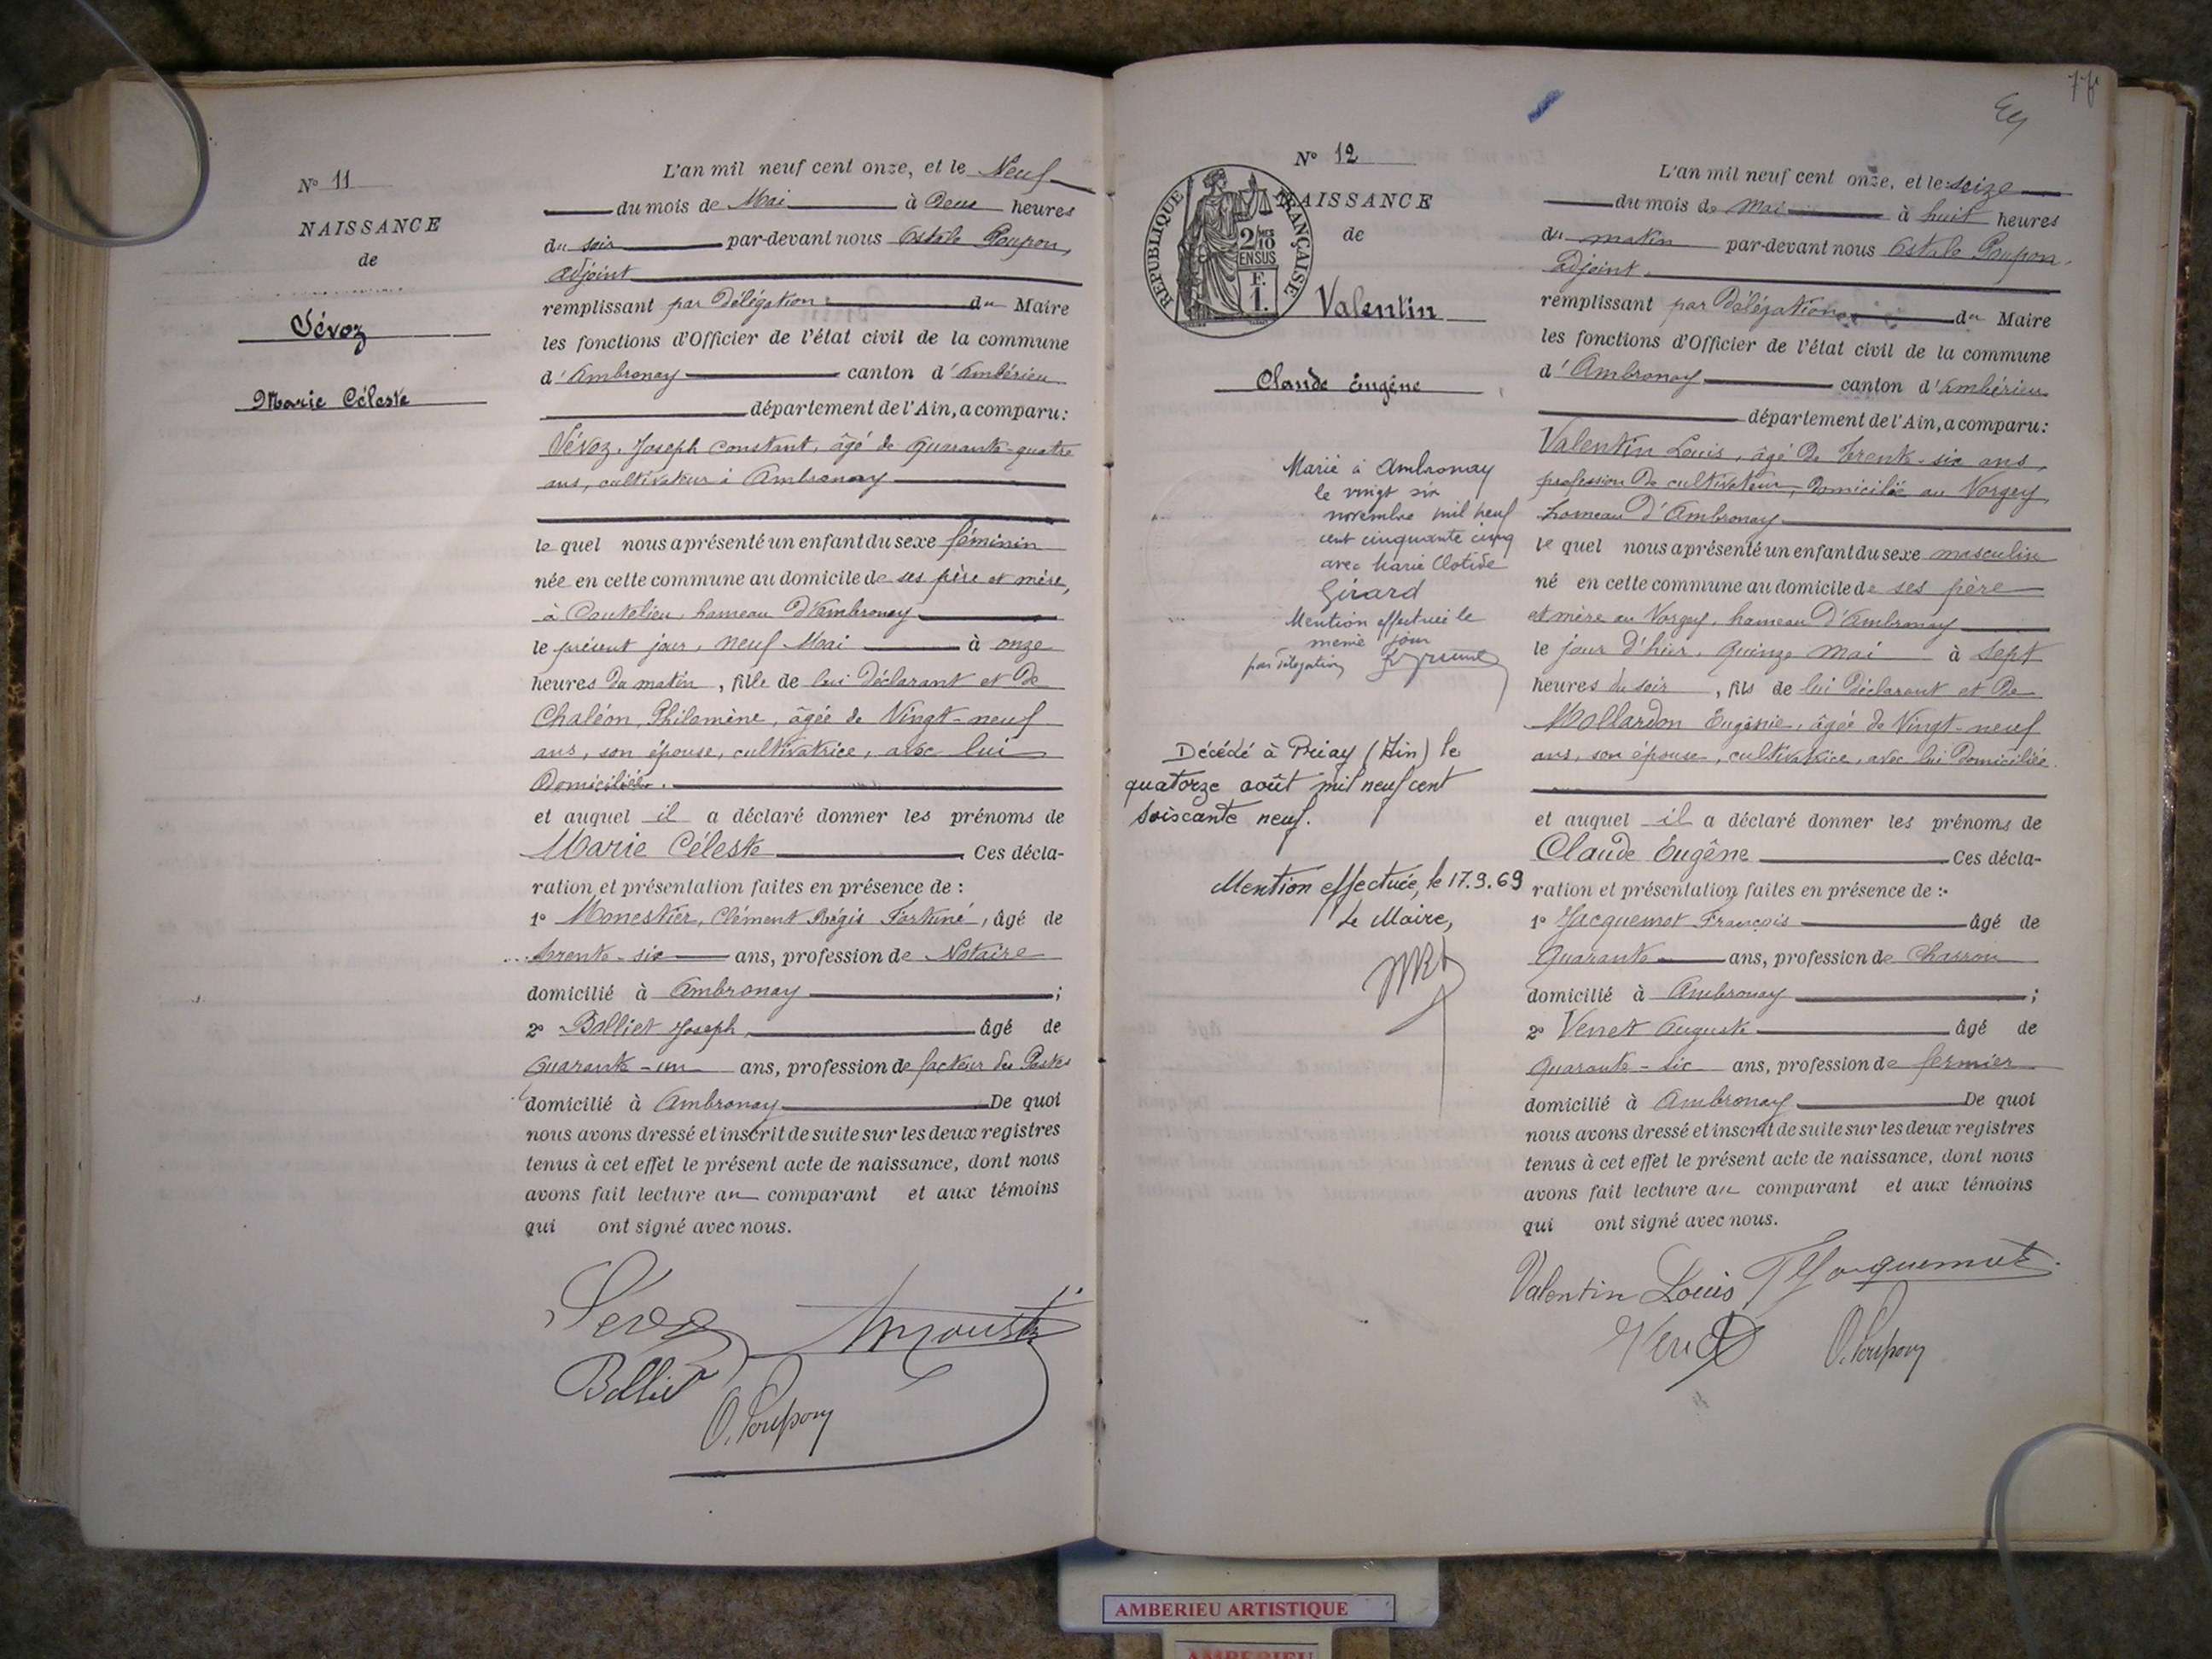 N° 11
NAISSANCE
de
Sévoz
Marie Céleste
L'an mil neuf cent onze, et le Neuf
du mois de Mai à Deux heures
du soir par-devant nous Poupon,
adjoint
remplissant par Délégation du Maire
les fonctions d'Officier de l'état civil de la commune
d'Ambronay canton d'Ambérieu
département de l'Ain, a comparu:
Sévoz, Joseph Constant, âgé de quarante-quatre
ans, cultivateur à Ambronay
le quel nous a présenté un enfant du sexe féminin
née en cette commune au domicile de ses père et mère,
à hameau d'Ambronay
le présent jour, neuf Mai à onze
heures du matin, fille de lui déclarant et De
Chaléon, Philomène, âgée de Vingt-neuf
ans, son épouse, cultivatrice, avec lui
Domiciliée.
et auquel il a déclaré donner les prénoms de
Marie Céleste Ces décla-
ration et présentation faites en présence de :
1° Monestier, Clément Régis Fortuné, âgé de
trente-six ans, profession de Notaire
domicilié à Ambronay ;
2° Balliet Joseph, âgé de
quarante-un ans, profession de facteur des Postes
domicilié à Ambronay De quoi
nous avons dressé et inscrit de suite sur les deux registres
tenus à cet effet le présent acte de naissance, dont nous
avons fait lecture au comparant et aux témoins
qui ont signé avec nous.
Sévoz
Balliet
O. Poupon
N° 12
NAISSANCE
de
RÉPUBLIQUE FRANÇAISE
2/10
EN SUS
F.
1.
Valentin
Claude Eugène
Marié à Ambronay
le vingt six
novembre mil neuf
cent cinquante cinq
avec Marie Clotide
Girard
Mention effectuée le
même jour
par délégation
Décédé à Priay (Ain) le
quatorze août mil neuf cent
soiscante neuf.
Mention effectuée, le 17.9.69
Le Maire,
L'an mil neuf cent onze, et le seize
du mois de Mai à huit heures
du matin par-devant nous Poupon
adjoint
remplissant par Délégation du Maire
les fonctions d'Officier de l'état civil de la commune
d'Ambronay canton d'Ambérieu
département de l'Ain, a comparu:
Valentin Louis, âgé De trente-six ans,
profession De cultivateur, Domicilié au Vorgey,
hameau d'Ambronay
le quel nous a présenté un enfant du sexe masculin
né en cette commune au domicile de ses père
et mère au Vorgey, hameau d'Ambronay
le jour d'hier, quinze mai à sept
heures du soir, fils de lui déclarant et De
Mollardon Eugénie, âgée de Vingt-neuf
ans, son épouse, cultivatrice, avec lui Domiciliée.
et auquel il a déclaré donner les prénoms de
Claude Eugène Ces décla-
ration et présentation faites en présence de :
1° Jacquemot François âgé de
Quarante ans, profession de Charron
domicilié à Ambronay ;
2° Venet Auguste âgé de
quarante-six ans, profession de fermier
domicilié à Ambronay De quoi
nous avons dressé et inscrit de suite sur les deux registres
tenus à cet effet le présent acte de naissance, dont nous
avons fait lecture au comparant et aux témoins
qui ont signé avec nous.
Valentin Louis Jacquemot
Venet O. Poupon
AMBERIEU ARTISTIQUE
AMBERIEU